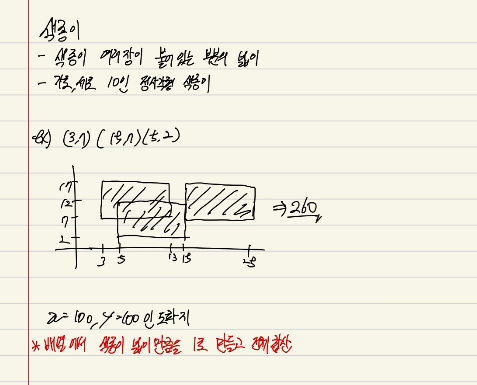 색종이
- 색종이 여러장이 붙어있는 부분의 넓이
- 가로, 세로 10인 정사각형 색종이
ex) (3,7) (15,7) (5,2)
17
12
7
2
⇒ 260
3 5 13 15 25
x=100, y=100인 도화지
* 배열에서 색종이 넓이만큼을 1로 만들고 전체합산